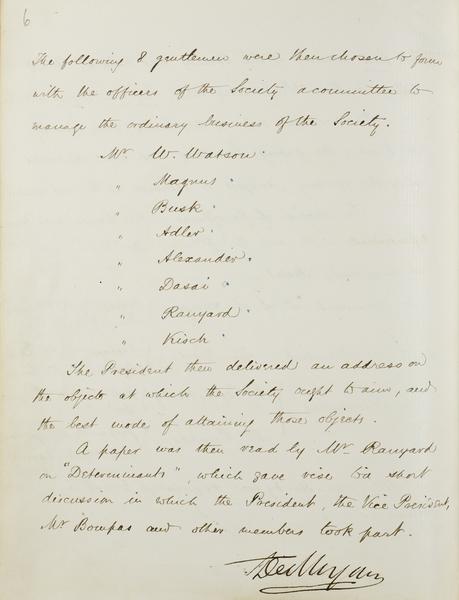 6
The following 8 gentlemen were then chosen to form
with the officers of the Society a committee to
manage the ordinary business of the Society.
Mr. W. Watson.
" Magnus.
" Busk.
" Adler.
" Alexander.
" Dasai.
" Ranyard.
" Kisch.
The President then delivered an address on
the objects at which the Society ought to aim, and
the best mode of attaining those objects.
A paper was then read by Mr. Ranyard
on "Determinants", which gave rise to a short
discussion in which the President, the Vice President,
Mr Bompas and other members took part.
ADeMorgan